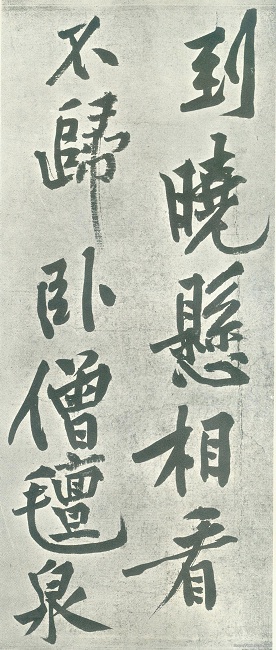 到曉懸相看
不歸臥僧氊泉